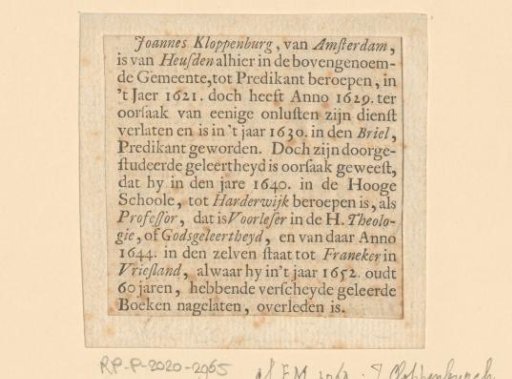 Joannes Kloppenburg, van Amſterdam,
is van Heuſden alhier in de bovengenoem-
de Gemeente, tot Predikant beroepen, in
't Jaer 1621. doch heeft Anno 1629. ter
oorſaak van eenige onluſten zijn dienſt
verlaten en is in 't jaar 1630. in den Briel,
Predikant geworden. Doch zijn doorge-
ſtudeerde geleertheyd is oorſaak geweeſt,
dat hy in den jare 1640. in de Hooge
Schoole, tot Harderwijk beroepen is, als
Profeſſor, dat is Voorleſer in de H. Theolo-
gie, of Godsgeleertheyd, en van daar Anno
1644. in den zelven ſtaat tot Franeker in
Vrieſland, alwaar hy in 't jaar 1652. oudt
60 jaren, hebbende verſcheyde geleerde
Boeken nagelaten, overleden is.
RP-P-2020-2965